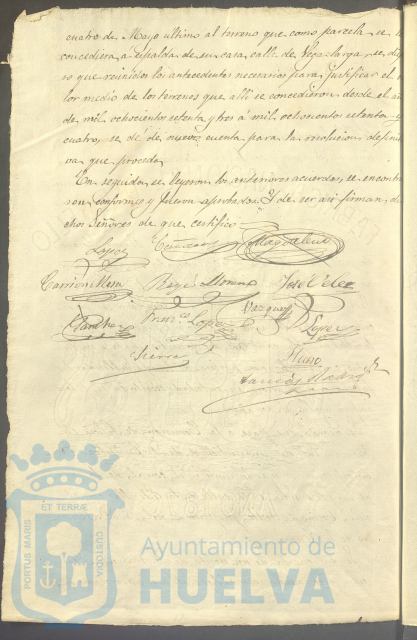 cuatro de Mayo ultimo al terreno que como parcela se
concediera, a espalda de su casa, calle de Vega-larga, se
so que reunidos los antecedentes necesarios para justificar el
lor medio de los terrenos que alli se concedieron desde el
de mil ochocientos setenta y tres á mil ochocientos setenta y
cuatro, se dé de nuevo cuenta para la resolucion defini
va que proceda.
En seguida se leyeron los anteriores acuerdos, se encont
ron conformes y fueron aprobados. Y de ser asi firman, di
chos Señores de que certifico
Lopez
Garrion Mesa Reyes Moreno José Velez
Sanchez Franco Lopez Vazquez Lopez
Sierra
PORTUS MARIS ET TERRÆ CUSTODIA
Ayuntamiento de
HUELVA